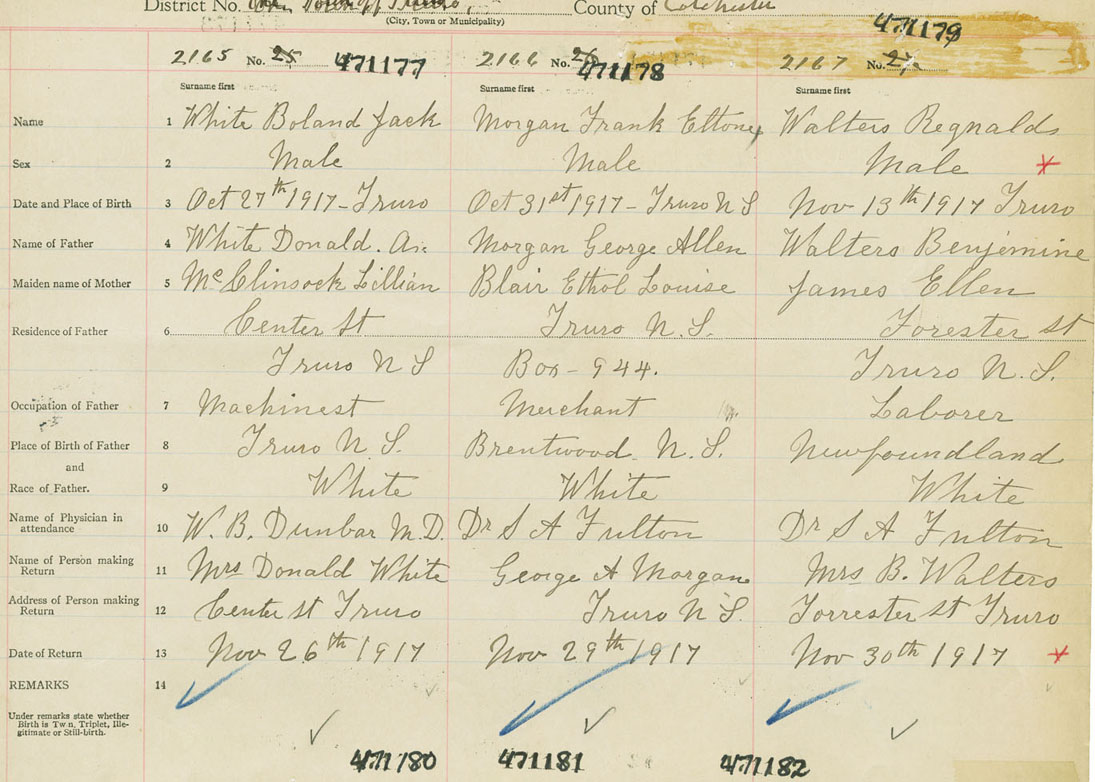 District No. Town of Truro, County of Colchester
(City, Town or Municipality)
471179
2165 No. 25 471177 2166 No. 26 471178 2167 No. 27
Surname first Surname first Surname first
Name 1 White Boland Jack Morgan Frank Eltone Walters Regnald
Sex 2 Male Male Male
Date and Place of Birth 3 Oct 27th 1917 - Truro Oct 31st 1917 - Truro N S Nov 13th 1917 Truro
Name of Father 4 White Donald. Morgan George Allen Walters Benjemine
Maiden name of Mother 5 McClinsock Lillian Blair Ethol Louise James Ellen
Residence of Father 6 Center St Truro N.S. Forester St
Truro N S Box - 944. Truro N.S.
Occupation of Father 7 Machinest Merchant Laborer
Place of Birth of Father 8 Truro N.S. Brentwood. N.S. Newfoundland
and
Race of Father. 9 White White White
Name of Physician in
attendance 10 W. B. Dunbar M.D. Dr S A Fulton Dr S A Fulton
Name of Person making
Return 11 Mrs Donald White George A Morgan Mrs B. Walters
Address of Person making
Return 12 Center st Truro Truro N S. Forrester st Truro
Date of Return 13 Nov 26th 1917 Nov 29th 1917 Nov 30th 1917
REMARKS 14
Under remarks state whether
Birth is Twin, Triplet, Ille-
gitimate or Still-birth.
471180 471181 471182